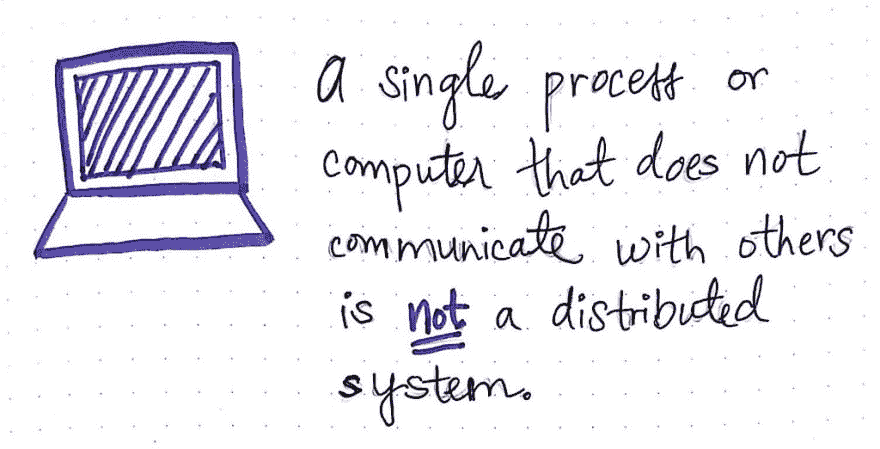 a single process or
computer that does not
communicate with others
is not a distributed
system.